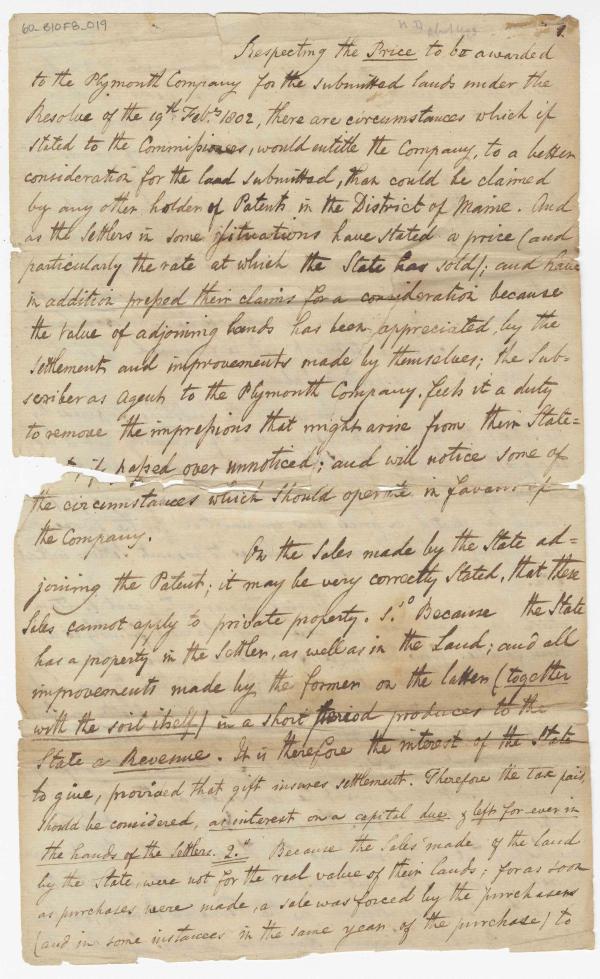 60-810FB-019
1.
Respecting the Price to be awarded
to the Plymouth Company for the submitted lands under the
Resolve of the 19th Feby 1802, there are circumstances which if
stated to the Commissioners, would entitle the Company, to a better
consideration for the land submitted, than could be claimed
by any other holder of Patents in the District of Maine. And
as the Settlers in some situations have stated a price (and
particularly the rate at which the State has sold); and have
in addition pressed their claims for a consideration because
the value of adjoining lands has been appreciated, by the
settlement and improvements made by themselves; the Sub=
scriber as Agent to the Plymouth Company, feels it a duty
to remove the impressions that might arise from their State=
if passed over unnoticed; and will notice some of
the circumstances which should operate in favour of
the Company.
On the Sales made by the State ad=
joining the Patent; it may be very correctly Stated, that these
Sales cannot apply to private property. Because the State
has a property in the Settler, as well as in the Land; and all
improvements made by the former on the latter (together
with the soil itself) in a short period produces to the
State a Revenue. It is therefore the interest of the State
to give, provided that gift insures settlement. Therefore the tax paid,
should be considered, as interest on a capital due & left for ever in
the hands of the Settlers. 2d Because the Sales made of the land
by the State, were not for the real value of their lands; for as soon
as purchases were made, a sale was forced by the purchasers
(and in some instances in the same year of the purchase) to